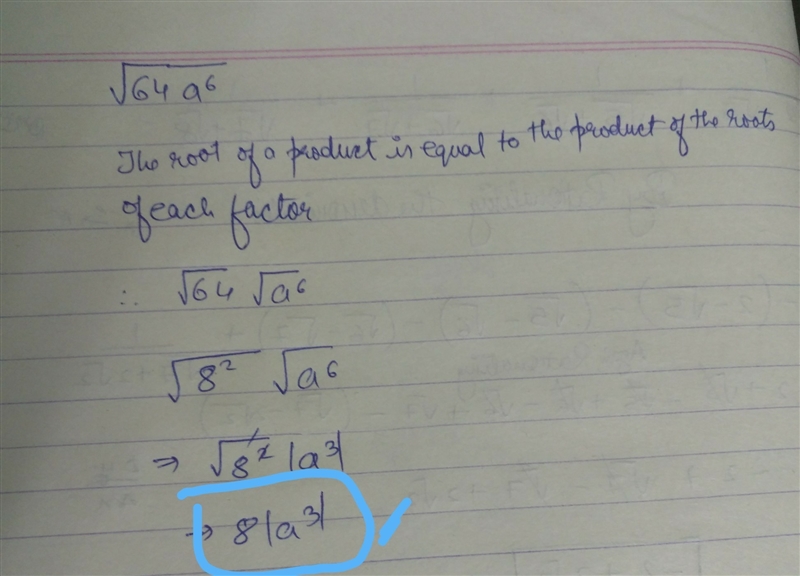 √64 a⁶
The root of a product is equal to the product of the roots
of each factor
∴ √64 √a⁶
√8² √a⁶
⇒ √8² |a³|
→ 8|a³|